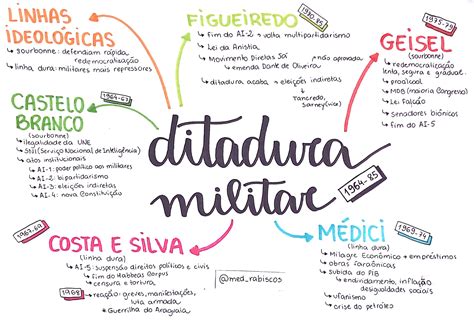 LINHAS
IDEOLÓGICAS
↳ sourbonne: defendiam rápida
redemocratização
↳ linha dura: militares mais repressores
FIGUEIREDO
1980-85
↳ fim do AI-2 → volta multipartidarismo
↳ Lei da Anistia
↳ Movimento Diretas Já!
↳ emenda Dante de Oliveira
não aprovada
↳ ditadura acaba → eleições indiretas
↳ Tancredo,
Sarney (vice)
1975-79
GEISEL
(sourbonne)
↳ redemocratização
lenta, segura e gradual
↳ proálcool
↳ MDB (maioria Congresso)
↳ Lei Falcão
↳ senadores biônicos
↳ fim do AI-5
1964-67
CASTELO
BRANCO
(sourbonne)
↳ ilegalidade da UNE
↳ SNI (Serviço Nacional de Inteligência)
↳ atos institucionais
↳ AI-1: poder político aos militares
↳ AI-2: bipartidarismo
↳ AI-3: eleições indiretas
↳ AI-4: nova Constituição
ditadura
militar
1964-85
1967-69
COSTA E SILVA
(linha dura)
↳ AI-5: suspensão direitos políticos e civis
↳ fim do Habeas Corpus
↳ censura e tortura
1968 → reação: greves, manifestações,
luta armada
* Guerrilha do Araguaia
@med_rabiscos
MÉDICI
1969-74
(linha dura)
↳ Milagre Econômico → empréstimos
↳ obras faraônicas
↳ subida do PIB
↳ endividamento, inflação
desigualdades sociais
↳ ufanismo
↳ crise do petróleo